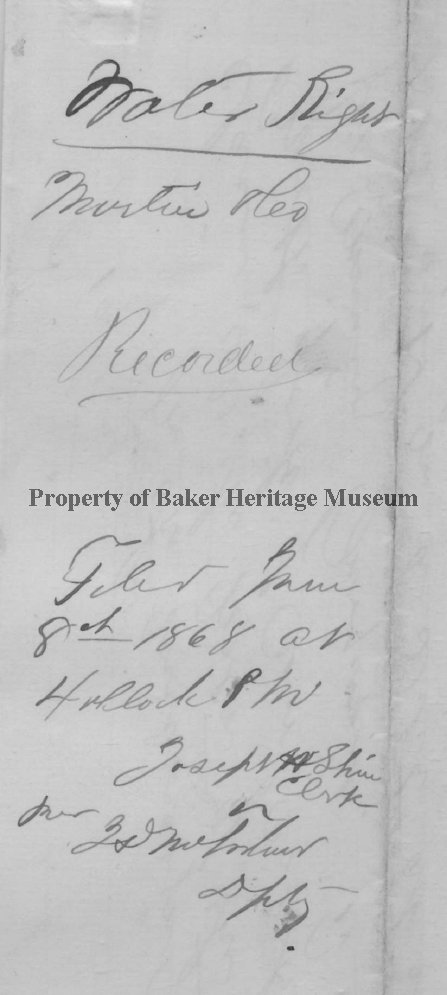 Water Right
Martin
Recorded
Property of Baker Heritage Museum
Filed
8th 1868 at
4 oClock P M
Joseph H Shinn
Clerk
Dpty